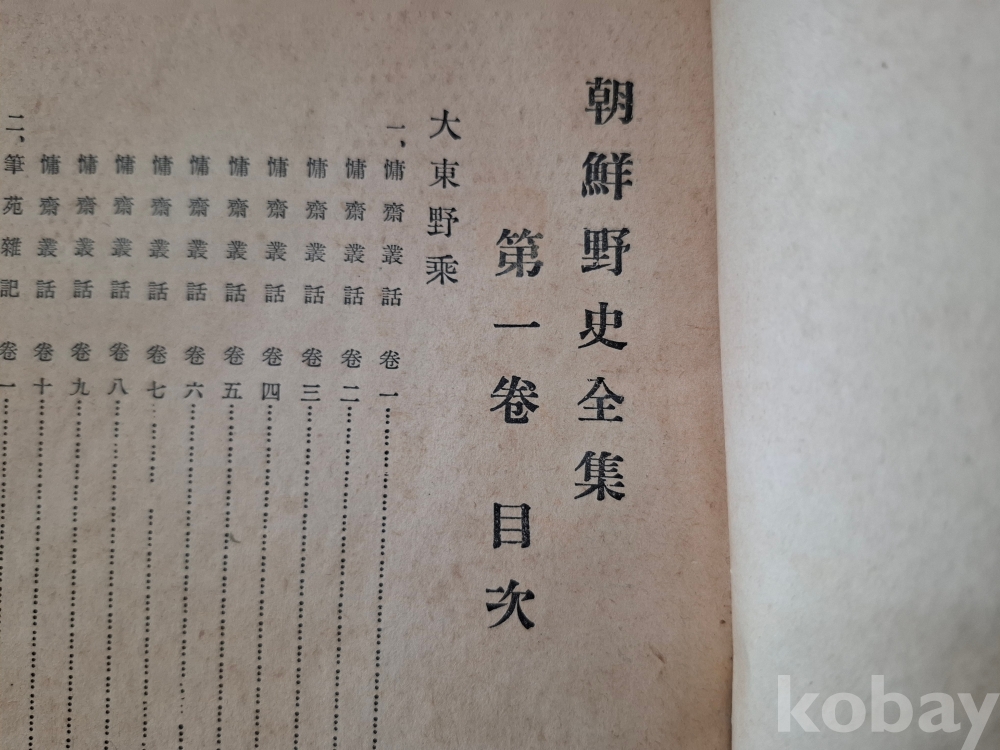 朝鮮野史全集
第一卷 目次
大東野乘
一、慵齋叢話 卷一
慵齋叢話 卷二
慵齋叢話 卷三
慵齋叢話 卷四
慵齋叢話 卷五
慵齋叢話 卷六
慵齋叢話 卷七
慵齋叢話 卷八
慵齋叢話 卷九
慵齋叢話 卷十
二、筆苑雜記 卷一
kobay